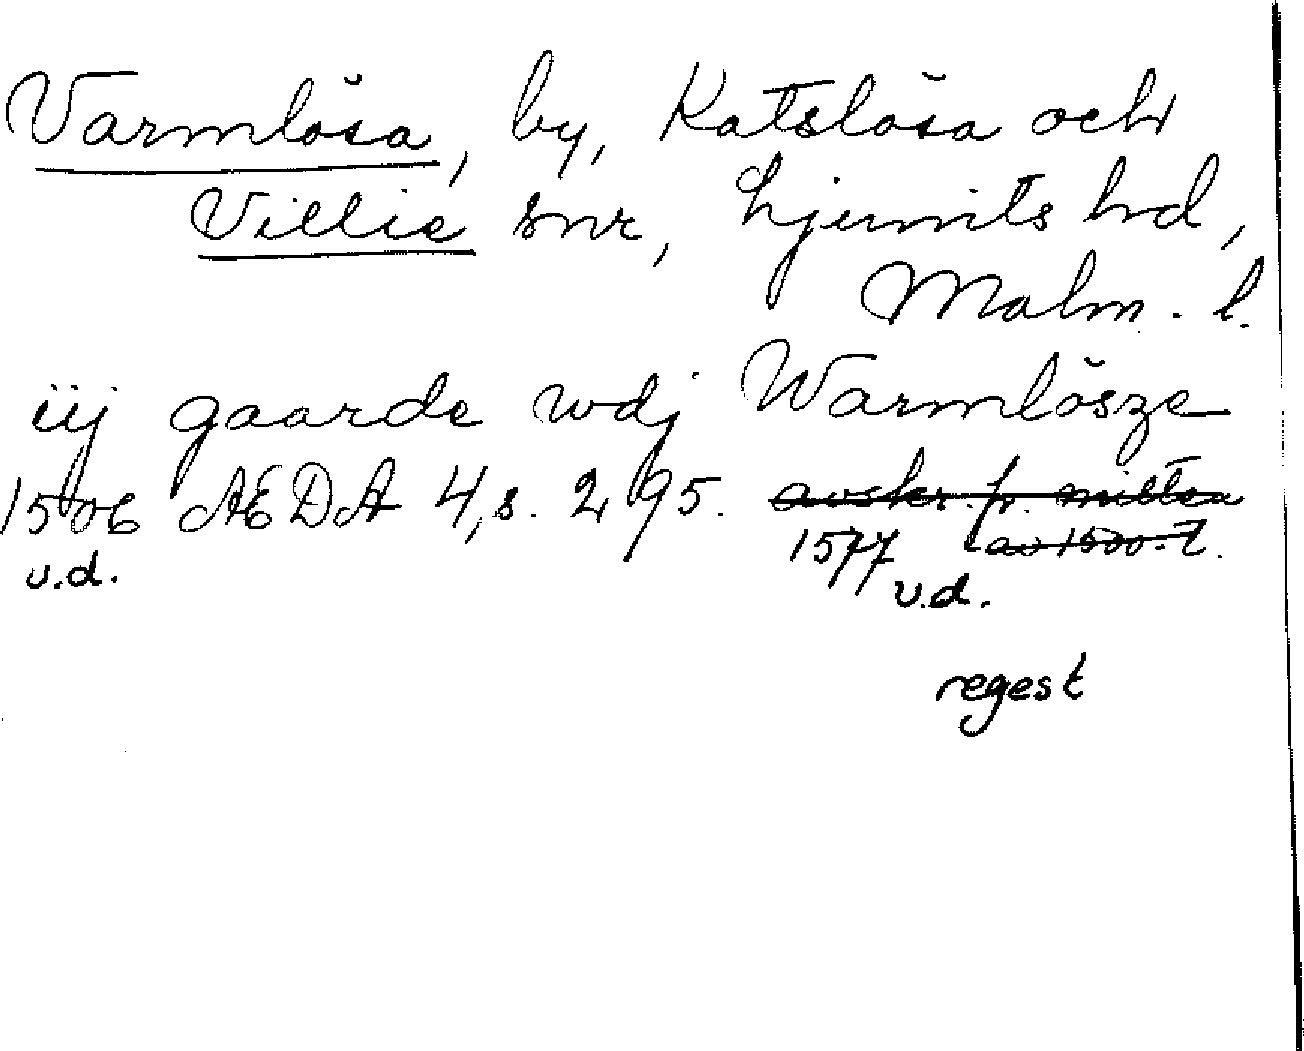 Varmlösa, by, Katslösa och
Villie snr, Ljunits hd,
Malm. l.
iij gaarde wdj Warmlösze
1506 ÆDA 4, s. 295. avskr. fr. mitten
1577 av 1500-t.
u.d. u.d.
regest